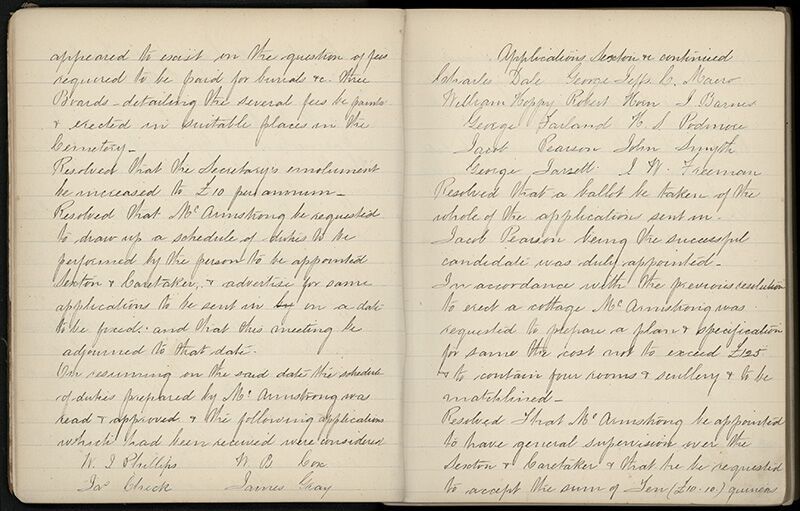 appeared to exist on the question of fees
required to be paid for burials &c. three
Boards - detailing the several fees be painted
& erected in suitable places in the
Cemetery -
Resolved that the Secretary's emolument
be increased to £10 per annum -
Resolved that Mr Armstrong be requested
to draw up a schedule of duties to be
performed by the person to be appointed
Sexton & Caretaker, & advertise for same
applications to be sent in by on a date
to be fixed: and that this meeting be
adjourned to that date.
On resuming on the said date the schedule
of duties prepared by Mr Armstrong was
read & approved & the following applications
which had been received were considered
W. J Phillips W. B Cox
Jas Chick James Gray
Applications, Sexton & continued
Charles Dale George Jeffs C.
William Hoppy Robert Horn J Barnes
George Farland H. S. Podmore
Jacob Pearson John Smyth
George J W. Freeman
Resolved that a ballot be taken of the
whole of the applications sent in -
Jacob Pearson being the successful
candidate was duly appointed -
In accordance with the previous resolution
to erect a cottage Mr Armstrong was
requested to prepare a plan & specification
for same the cost not to exceed £125
& to contain four rooms & scullery & to be
matchlined -
Resolved that Mr Armstrong be appointed
to have general supervision over the
Sexton & Caretaker & that he be requested
to accept the sum of Ten (£10.10.) guineas